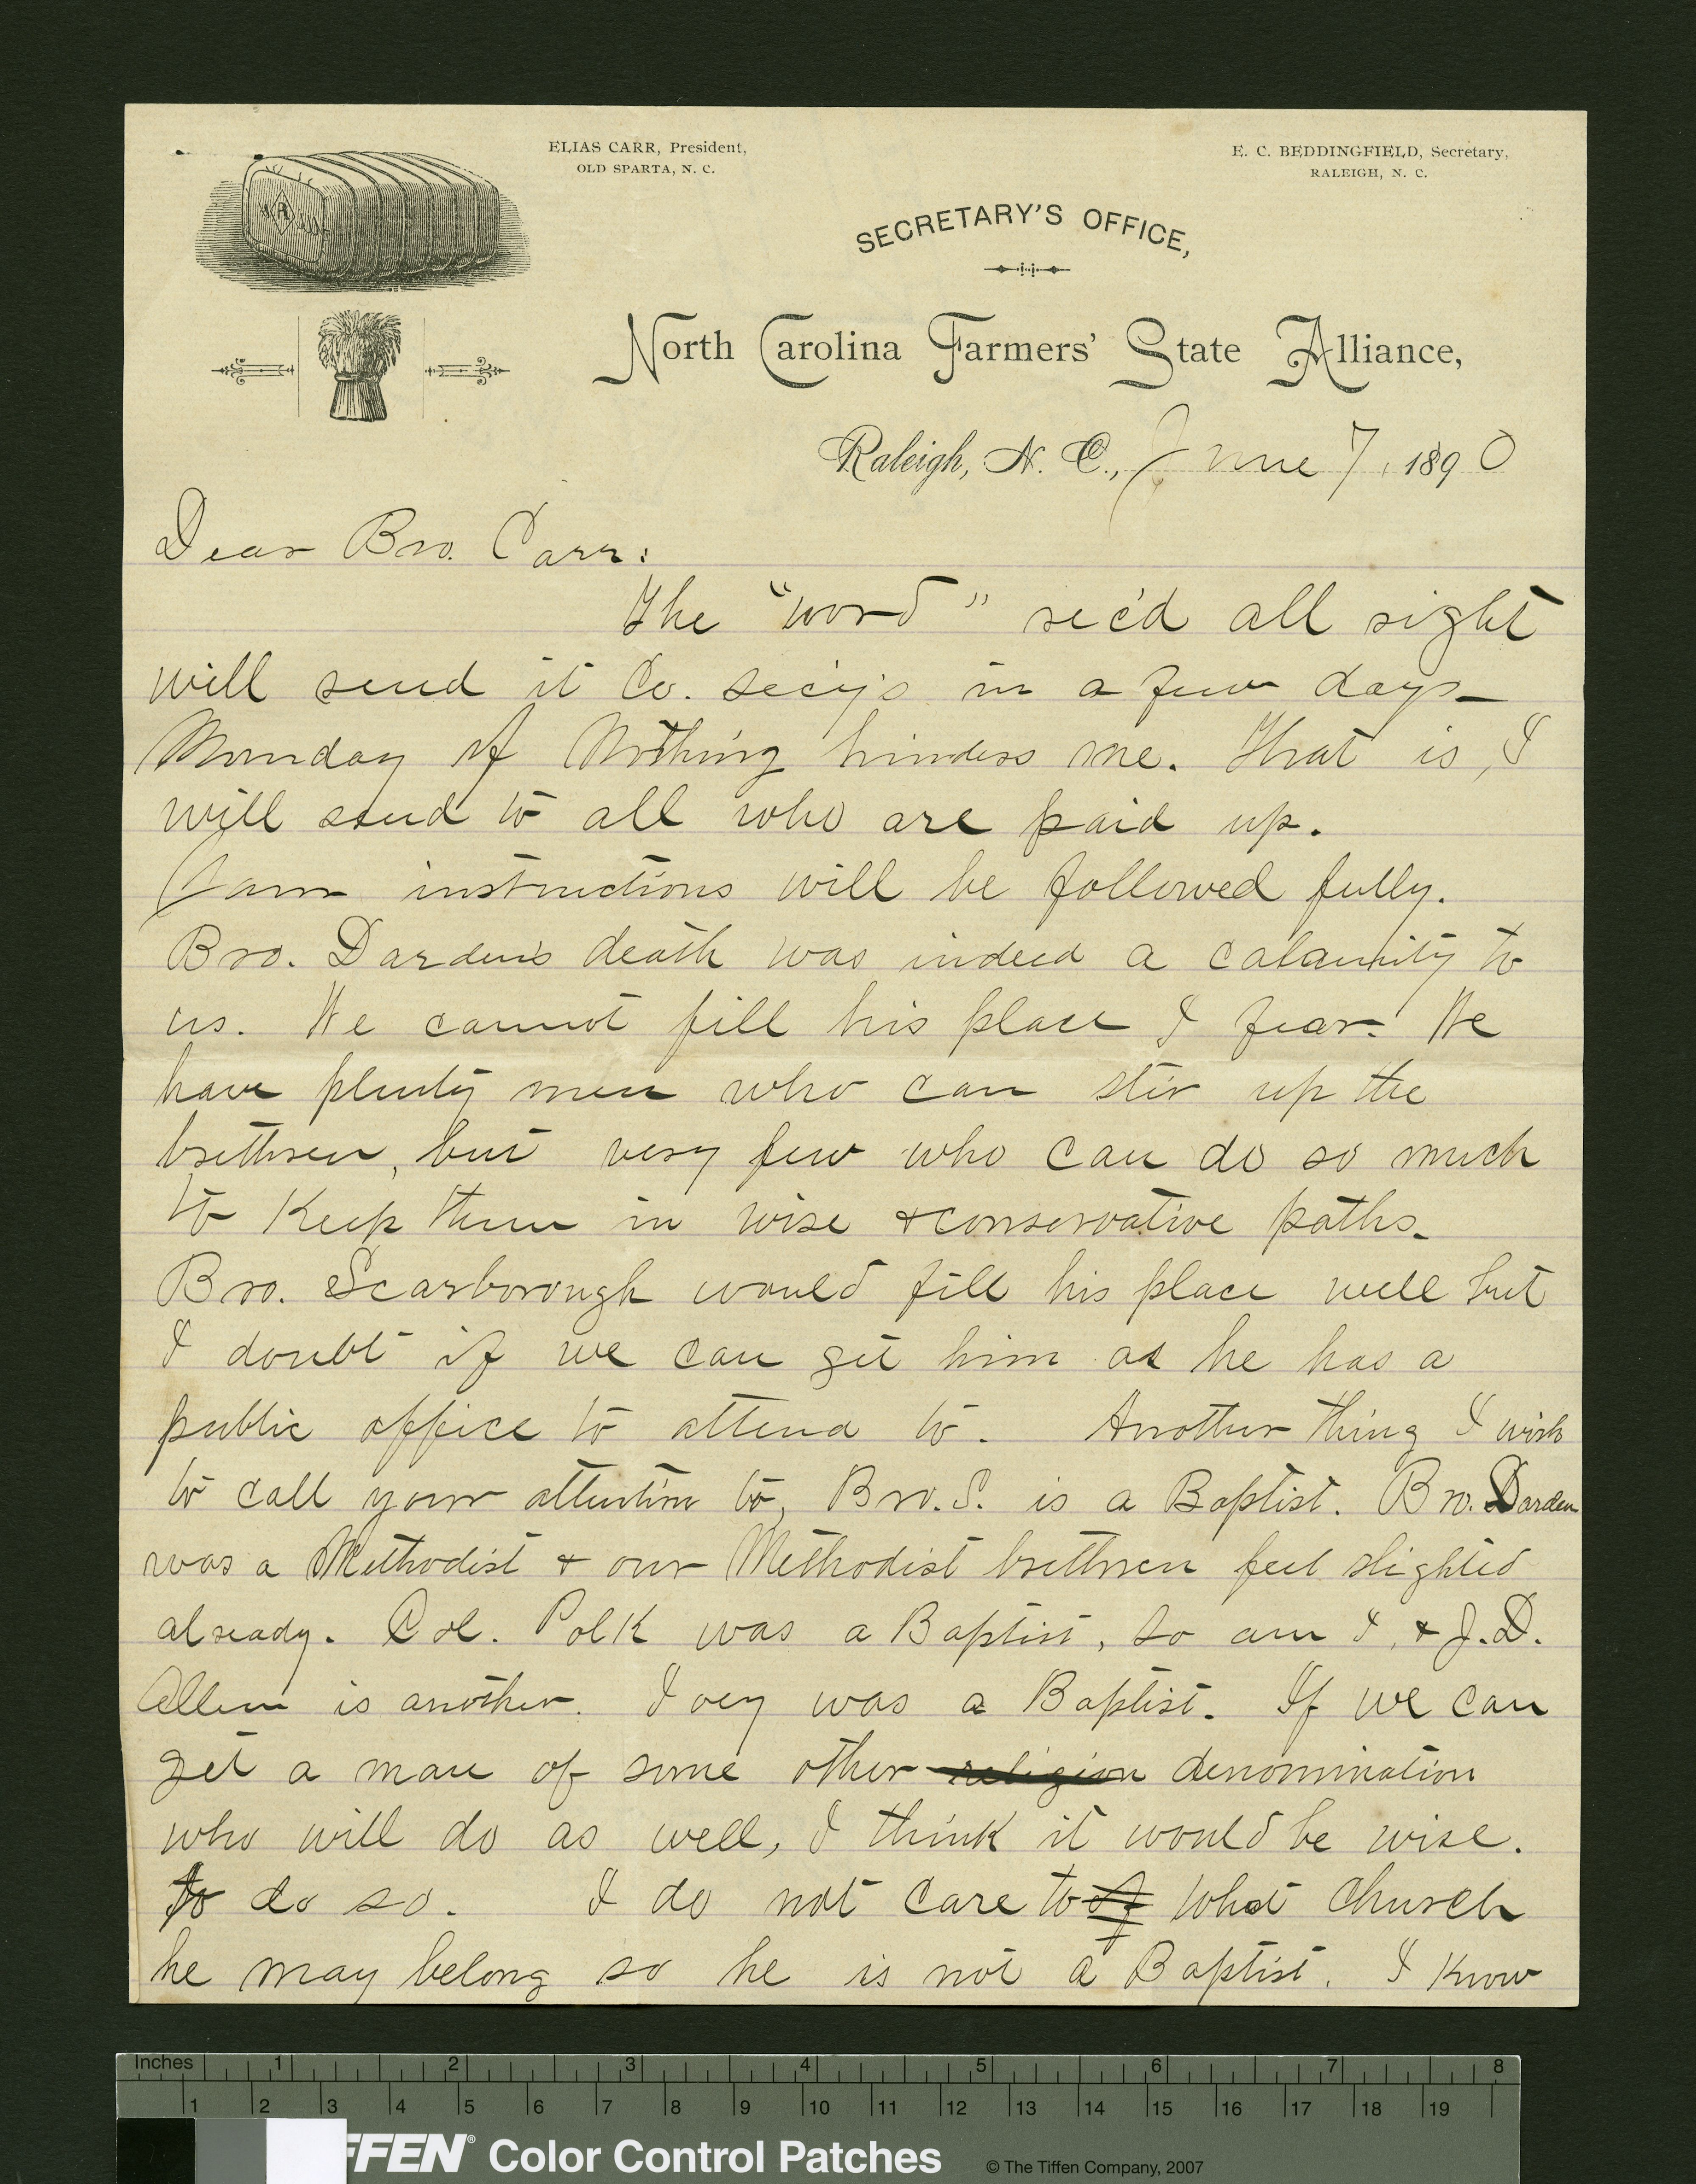 ELIAS CARR, President,
OLD SPARTA, N. C.
E. C. BEDDINGFIELD, Secretary,
RALEIGH, N. C.
SECRETARY'S OFFICE,
North Carolina Farmers' State Alliance,
Raleigh, N. C., June 7, 1890
Dear Bro. Carr:
The "word" rec'd all right
will send it Co. sec'y's in a few days—
Monday if Nothing hinders me. That is, I
will send to all who are paid up.
Your instructions will be followed fully.
Bro. Darden's death was indeed a calamity to
us. We cannot fill his place I fear. We
have plenty men who can stir up the
brethren, but very few who can do so much
to Keep them in wise & conservative paths.
Bro. Scarborough would fill his place well but
I doubt if we can get him as he has a
public office to attend to. Another thing I wish
to call your attention to, Bro. S. is a Baptist. Bro. Darden
was a Methodist & our Methodist brethren feel slighted
already. Col. Polk was a Baptist, so am I, & J.D.
Allen is another. Ivey was a Baptist. If we can
get a man of some other religion denomination
who will do as well, I think it would be wise.
to do so. I do not care to of what church
he may belong so he is not a Baptist. I Know
Inches 1 2 3 4 5 6 7 8
1 2 3 4 5 6 7 8 9 10 11 12 13 14 15 16 17 18 19
FFEN® Color Control Patches © The Tiffen Company, 2007